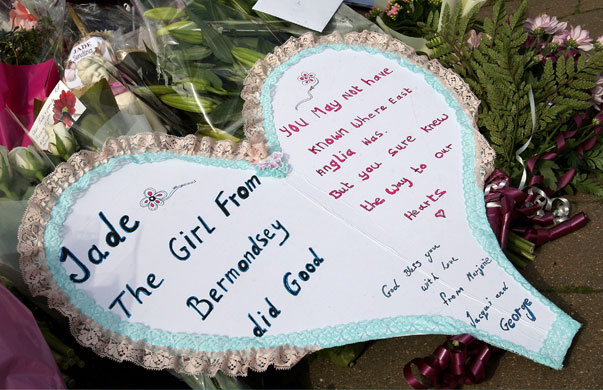 JADE
Jade
The Girl From
Bermondsey
did Good
You May Not have
Known Where East
Anglia Was.
But you Sure Knew
the Way to Our
Hearts
God Bless you
with Love
From Marjorie
Jacqui and
George